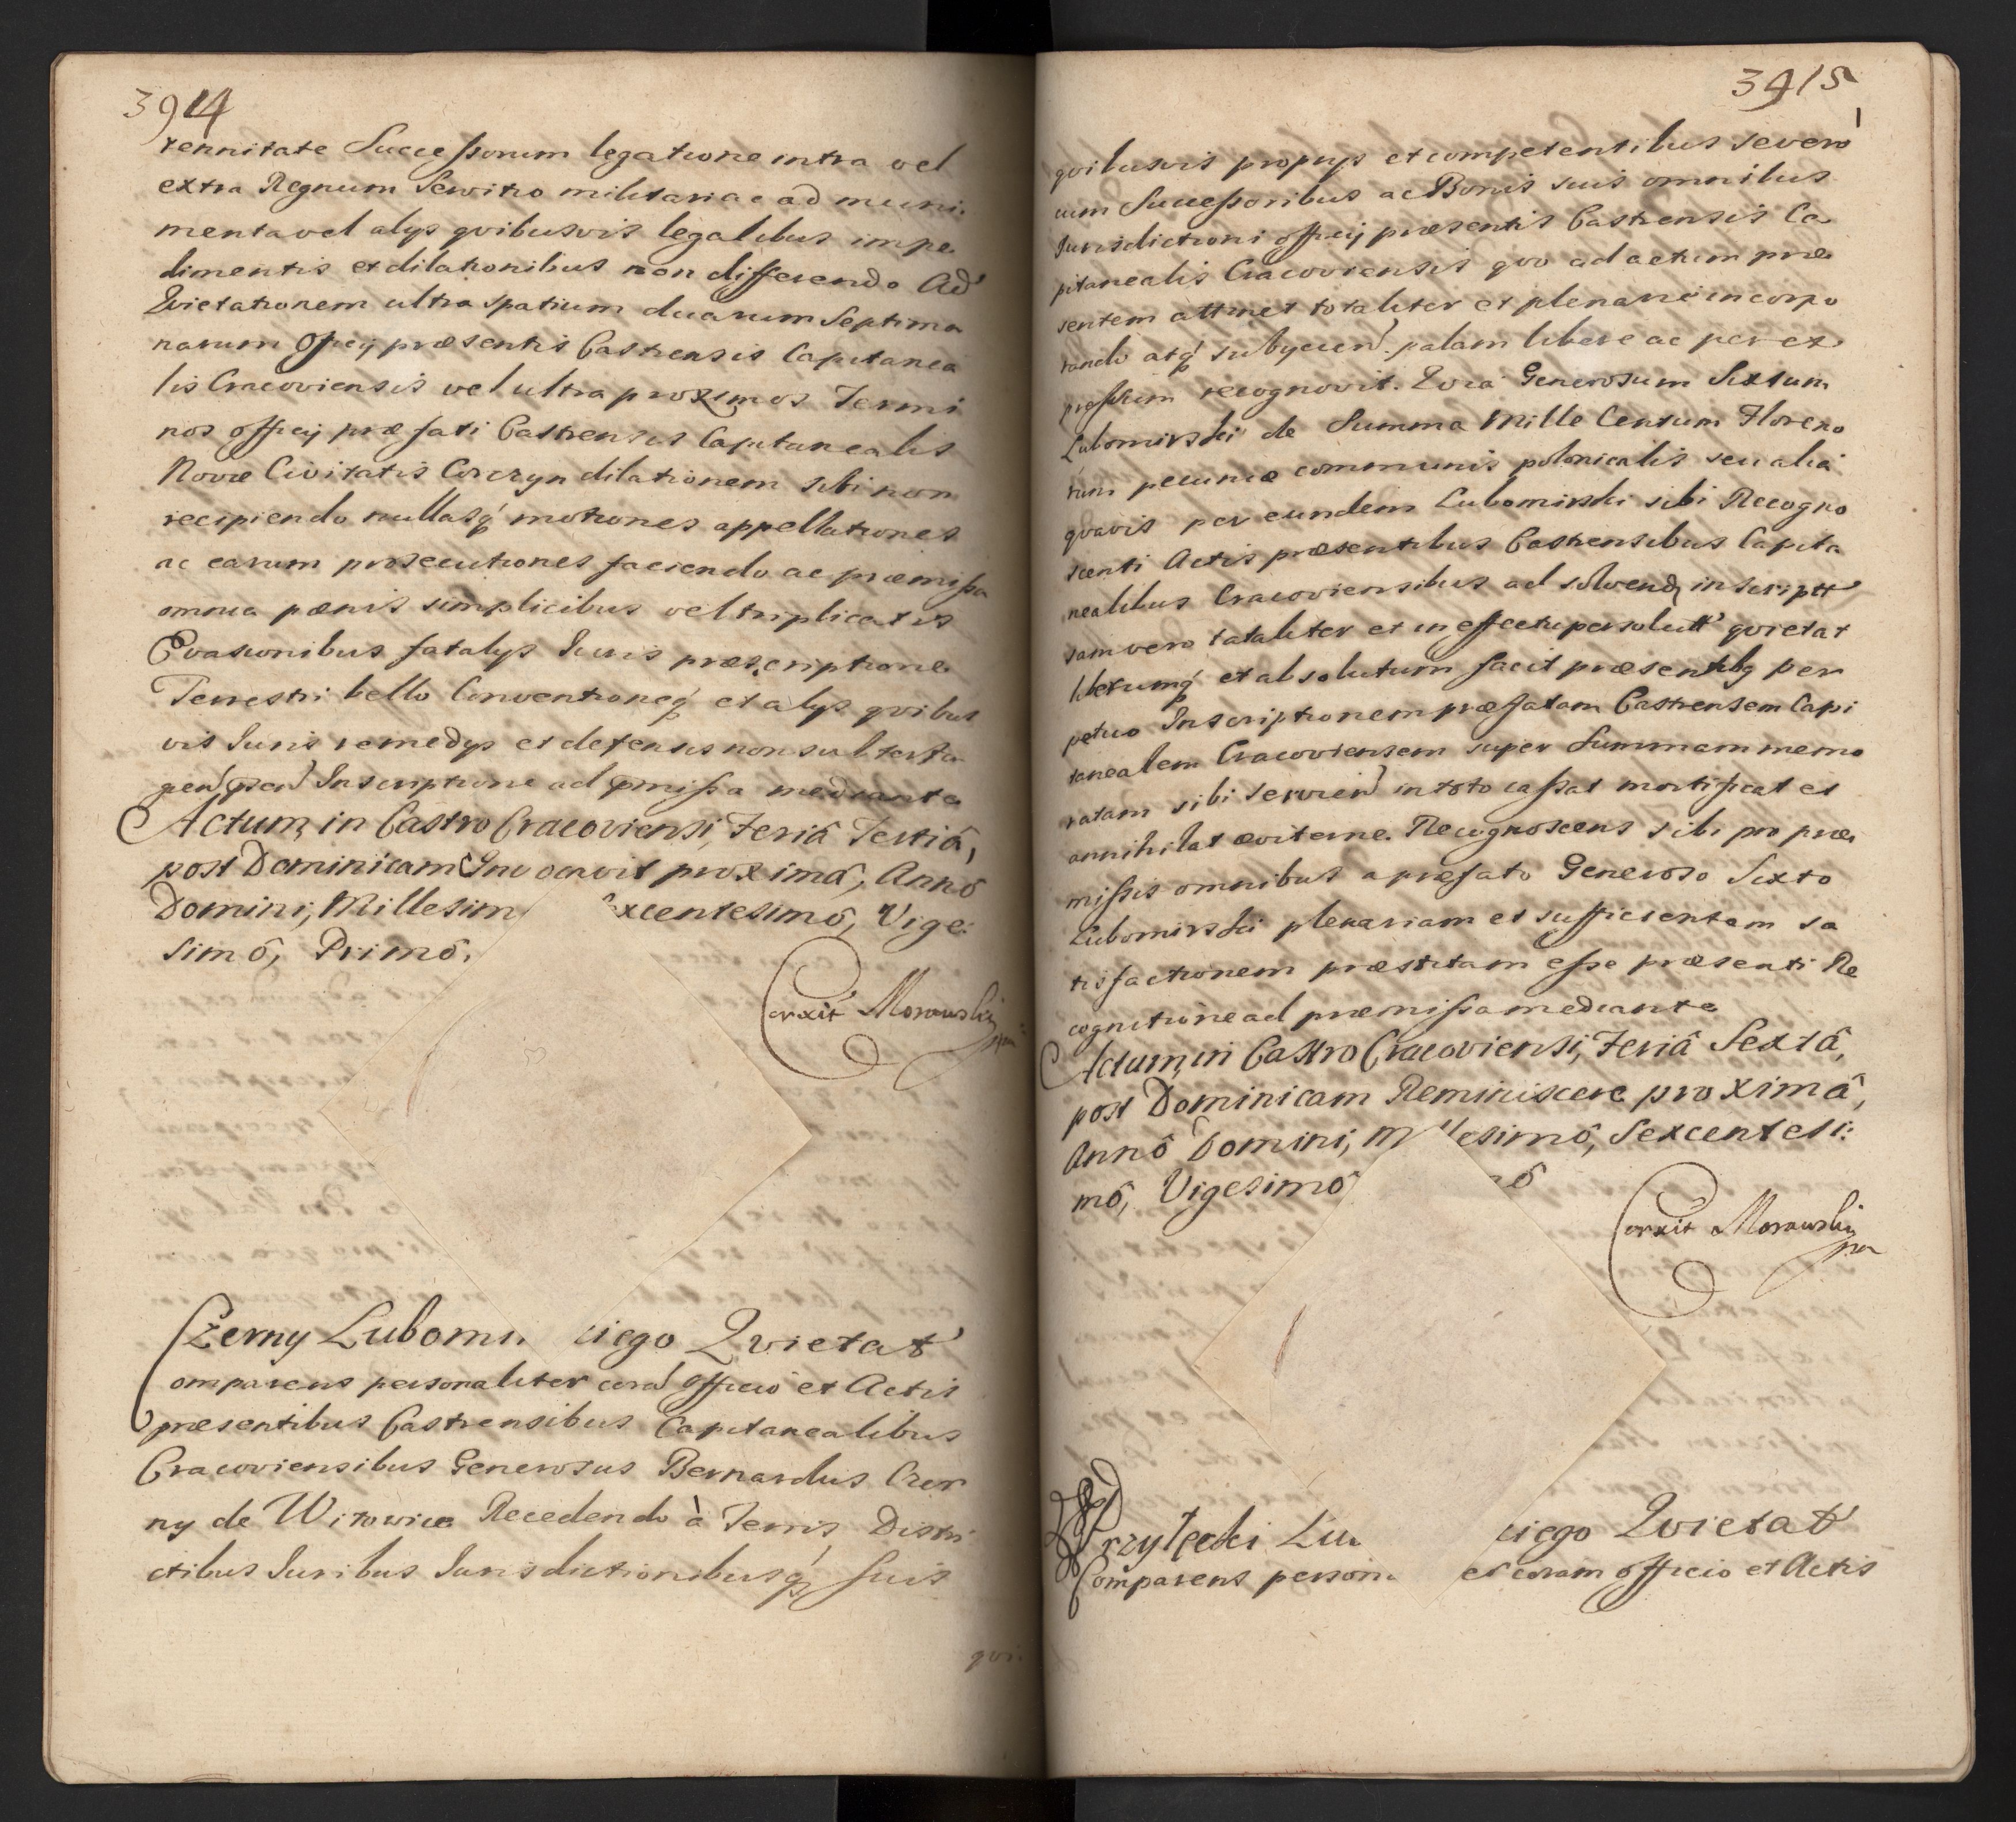 3914
rennitate Successorum legatione intra vel
extra Regnum Servitio militari ac ad muni,
menta vel alys qvibusvis legalibus impe
dimentis et dilationibus non differendo Ad
Qvietationem ultra spatium duarum Septima
narum Officij præsentis Castrensis Capitanea
lis Cracoviensis vel ultra proximos Termi
nos officij præfati Castrensis Capitanealis
Novæ Civitatis Corczyn dilationem sibi non
recipiendo nullasq́ motiones appellationes
ac earum prosecutiones faciendo ac præmissa
omnia pænis simplicibus vel triplicatis
Evasionibus fatalys Iuris præscriptione
Terrestri bello Conventioneq́ et alys qvibus
vis Iuris remedys et defensis non subterfu
gen Inscriptione ad præmissa mediante
Actum, in Castro Cracoviensi, Feriâ Tertiâ,
post Dominicam Invocavit proximâ, Annô
Domini, Millesim xcentesimô, Vige:
simô, Primô.
Corxit Morawski
Czerny Lubomi iego Qvietat
omparens personaliter corā Officio et Actis
præsentibus Castrensibus Capitanealibus
Cracoviensibus Generosus Bernardus Czer
ny de Witowice Recedendo à Terris, Distri
ctibus Iuribus Iurisdictionibusq́ suis
qvi
3915
qvibusvis proprys et competentibus se vero
cum Successoribus ac Bonis suis omnibus
Iurisdictioni officij præsentis Castrensis Ca
pitanealis Cracoviensis qvo ad actum præ
sentem attinet totaliter et plenarie incorpo
rando atq́ subyciend palam libere ac per ex
pressum recognovit. Qvia Generosum Sixtum
Lubomirski de Summa Mille Centum Floreno
rum pecuniæ communis polonicalis seu alia
qvavis per eundem Lubomirski sibi Recogno
scenti Actis præsentibus Castrensibus Capita
nealibus Cracoviensibus ad solvend inscriptt
iam vero totaliter et in effectu persolutt qvietat
liberumq́ et absolutum facit præsentibq per
petuo Inscriptionem præfatam Castrensem Capi
tanealem Cracoviensem super Summam memo
ratam sibi servien in toto cassat mortificat et
annihilat æviterne. Recognoscens sibi pro præ
missis omnibus a præfato Generoso Sixto
Lubomirski plenariam et sufficientem sa
tisfactionem præstitam esse præsenti Re
cognitione ad præmissa mediante
Actum, in Castro Cracoviensi, Feriâ Sextâ,
post Dominicam Reminiscere proximâ,
Annô Domini, M lesimô, Sexcentesi:
mô, Vigesimô mô
Corxit Morawski
Przyłęcki Lu iego Qvietat
Comparens person er coram officio et Actis